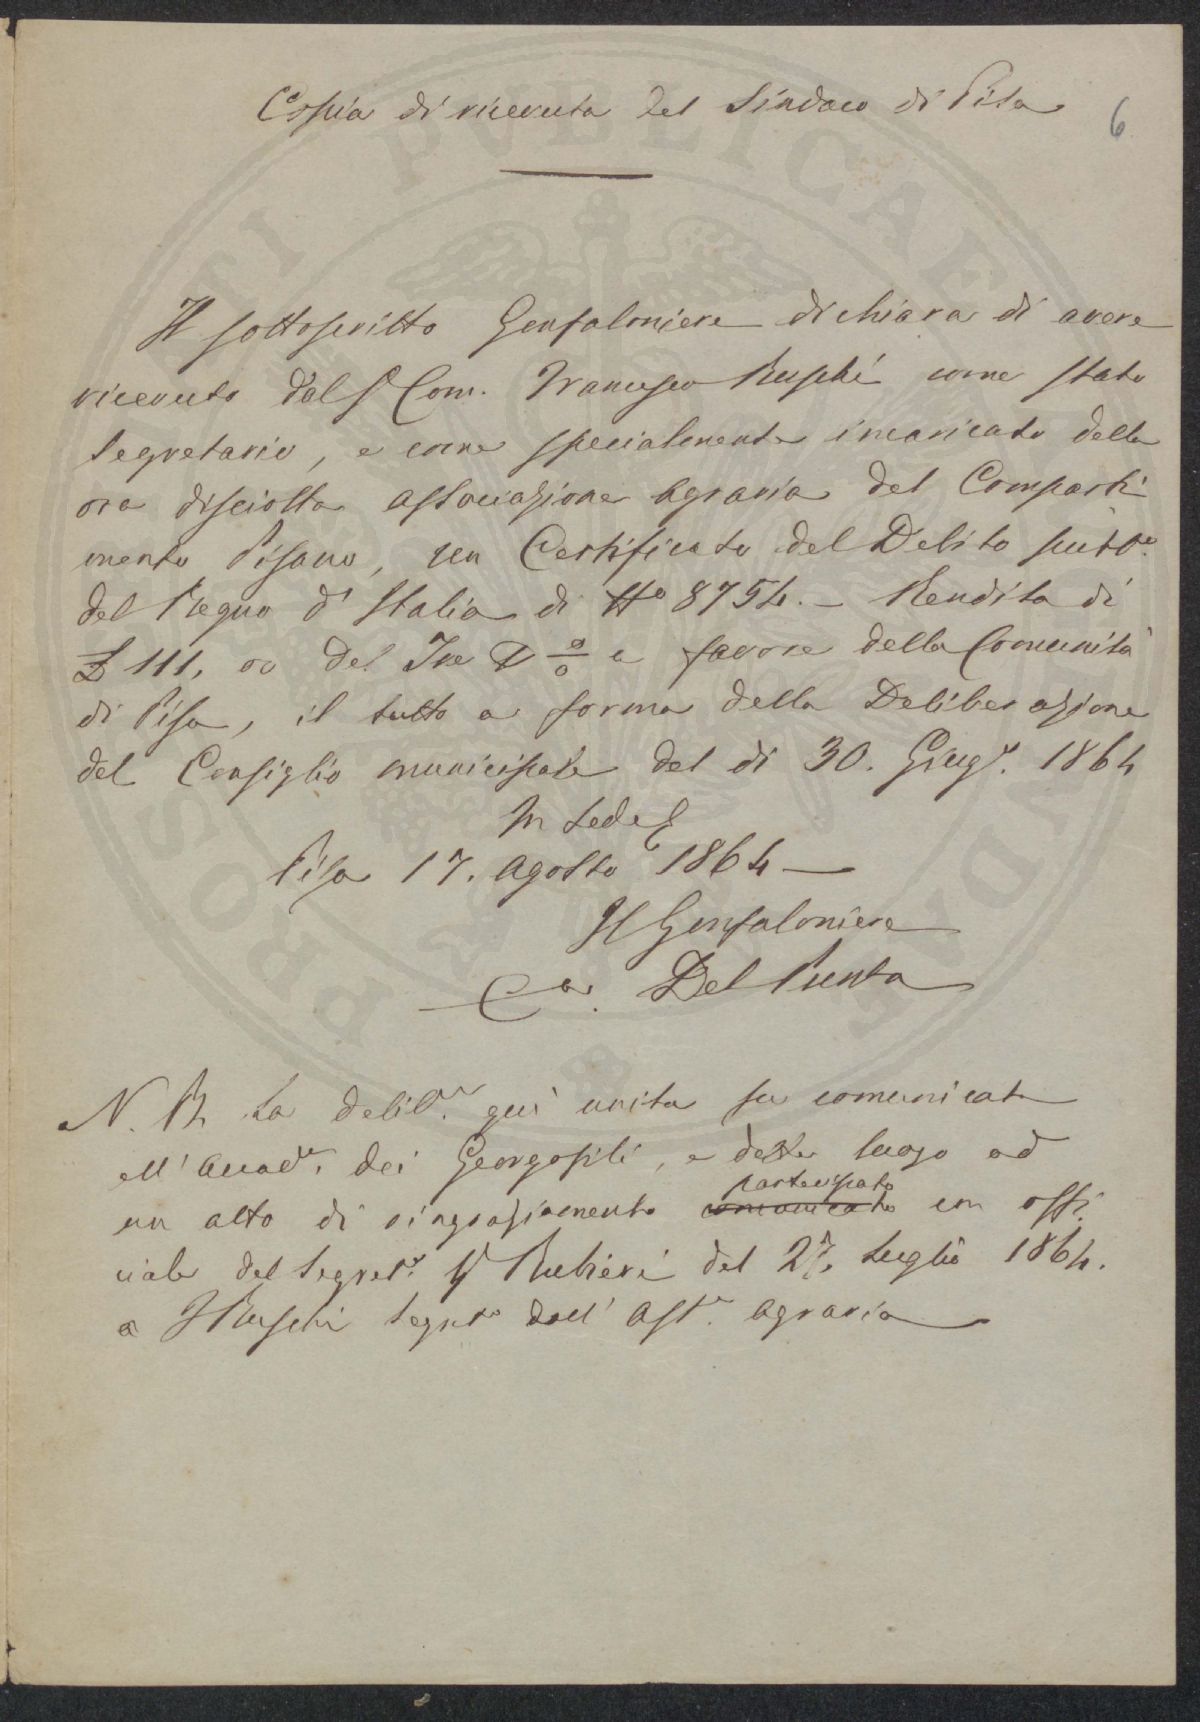 Copia di ricevuta del Sindaco di Pisa
6
Il sottoscritto Gonfaloniere dichiara di avere
ricevuto dal Sr. Com. Francesco Ruschi come stato
Segretario, e come specialmente incaricato della
ora disciolta associazione Agraria del Comparti
mento Pisano, un Certificato del Debito pubbo.
del Regno d'Italia di No 8754. – Rendita di
£ 111, 00 del Tre P % a favore della Comunità
di Pisa, il tutto a forma della Deliberazione
del Consiglio municipale del di 30. Giugo. 1864
In fede
Pisa 17. Agosto 1864 —
Il Gonfaloniere
Ca. Del Punta
N. B. La delibne. qui unita fu comunicata
all'Accada. dei Georgofili, e dette luogo ad
un atto di ringraziamento comunicato partecipato con offi
ciale del Segreto. Sr Rubieri del 27. Luglio 1864.
a F Ruschi Segreto dell'Asse. Agraria
PROSPERITATI PUBLICAE AUGENDAE